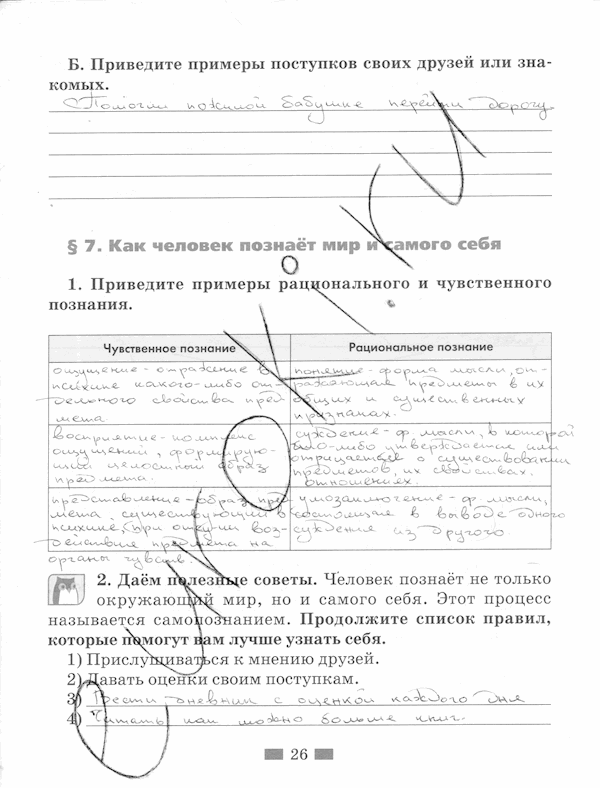 Б. Приведите примеры поступков своих друзей или зна-
комых.
Помогли пожилой бабушке перейти дорогу.
§ 7. Как человек познаёт мир и самого себя
1. Приведите примеры рационального и чувственного
познания.
Чувственное познание
ощущение - отражение в
психике какого-либо от-
дельного свойства пред-
мета
восприятие - комплекс
ощущений, формирую-
щий целостный образ
предмета.
представление - образ пред-
мета существующий в
психике, при отсутствии воз-
действия предмета на
органы чувств.
Рациональное познание
понятие - форма мысли, от-
ражающая предметы в их
общих и существенных
признаках.
суждение - ф. мысли, в которой
что-либо утверждается или
отрицается о существовании
предметов, их свойствах.
отношениях.
умозаключение - ф. мысли,
состоящие в выводе одного
суждения из другого
2. Даём полезные советы. Человек познаёт не только
окружающий мир, но и самого себя. Этот процесс
называется самопознанием. Продолжите список правил,
которые помогут вам лучше узнать себя.
1) Прислушиваться к мнению друзей.
2) Давать оценки своим поступкам.
3) Вести дневник с оценкой каждого дня
4) Читать как можно больше книг.
26